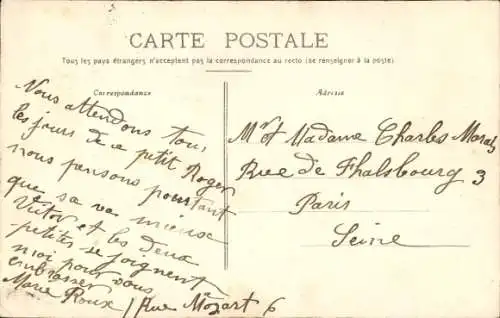 CARTE POSTALE
Tous les pays étrangers n'acceptent pas la correspondance au recto (se renseigner à la poste)
Correspondance
Nous attendons tous
les jours de petit Roger
nous pensons pourtant
que sa va mieux
Victor et les deux
petites se joignent
moi pour vous
embrasser
Marie Roux / Rue Mozart 6
Adresse
Mr et Madame Charles
Rue de Phalsbourg 3
Paris
Seine